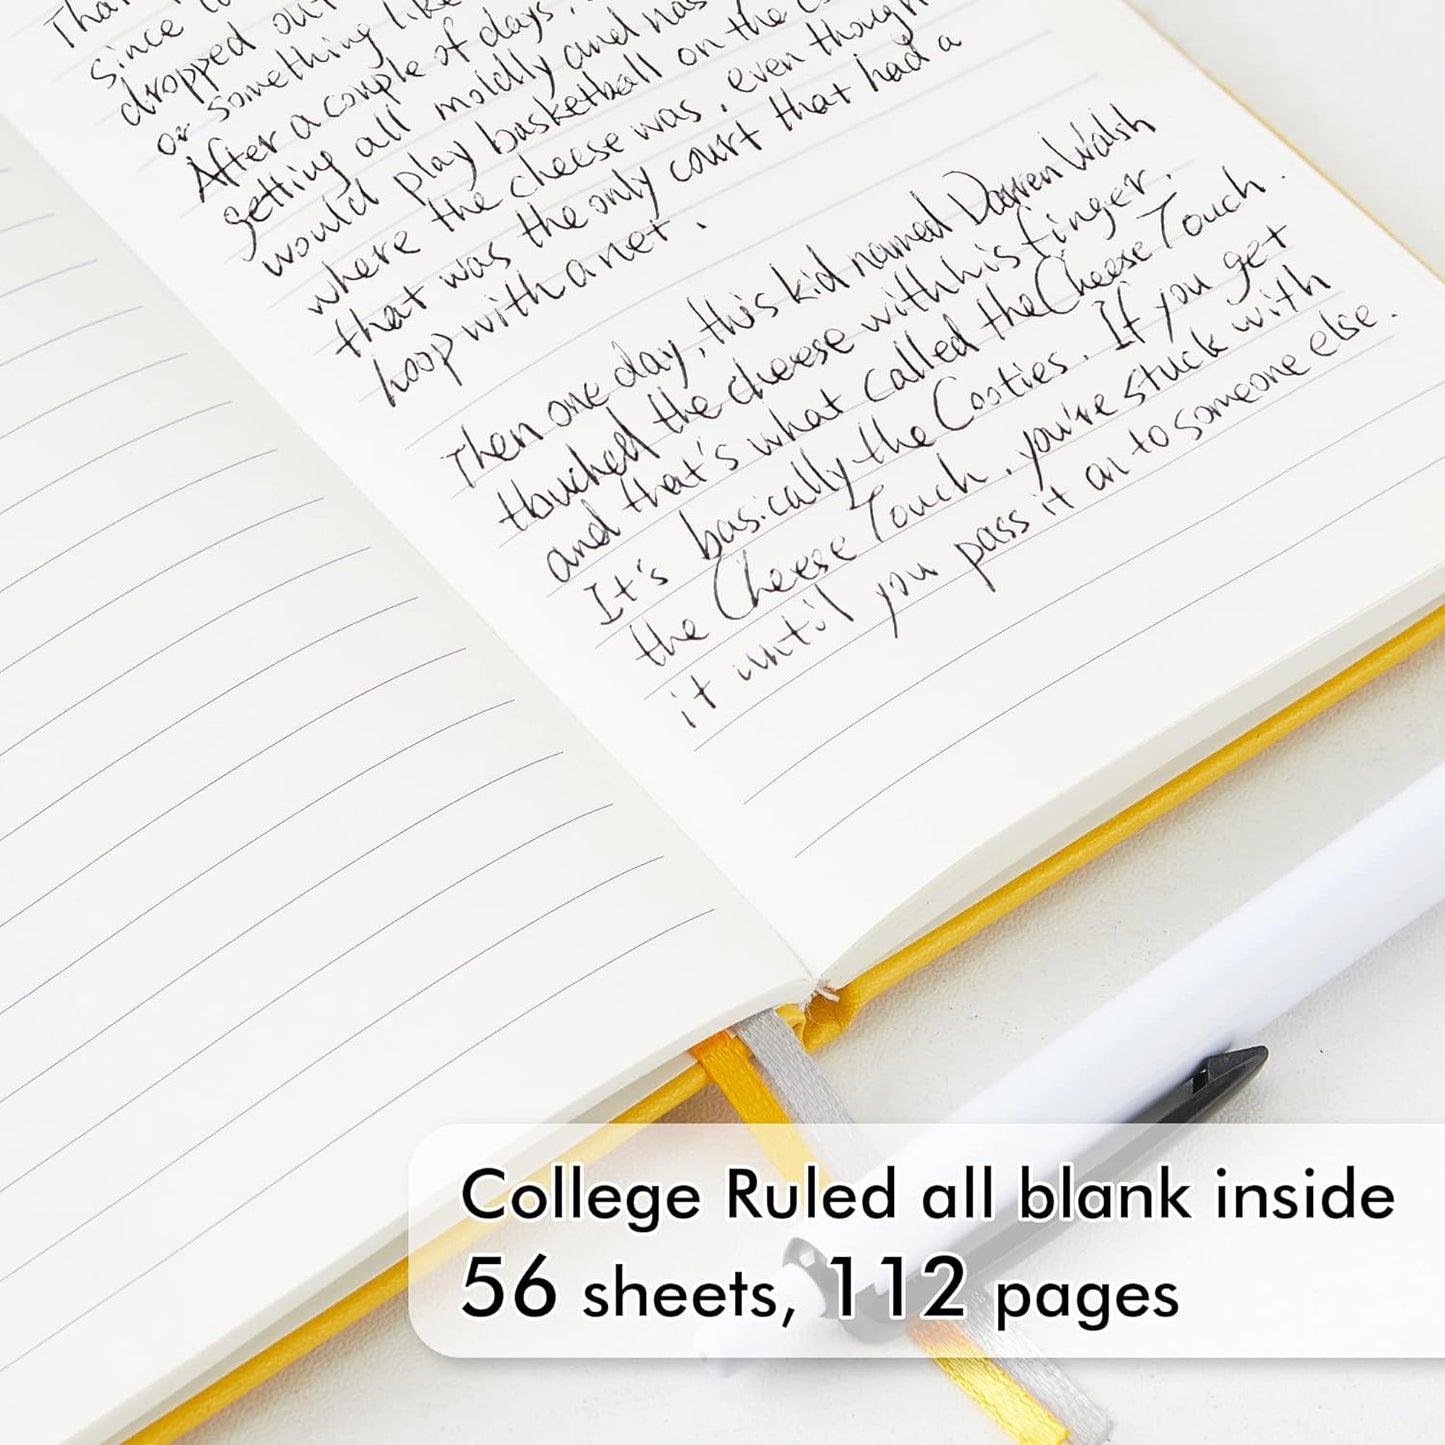 That
since
dropped out
or something like
After a couple of days,
getting all moldly and has
would play basketball on the
where the cheese was, even though
that was the only court that had a
hoop with a net.
Then one day, this kid named Darren Walsh
thouched the cheese with his finger.
and that's what called the Cheese Touch.
It's basically the Cooties. If you get
the Cheese Touch, you're stuck with
it until you pass it on to someone else.
College Ruled all blank inside
56 sheets, 112 pages